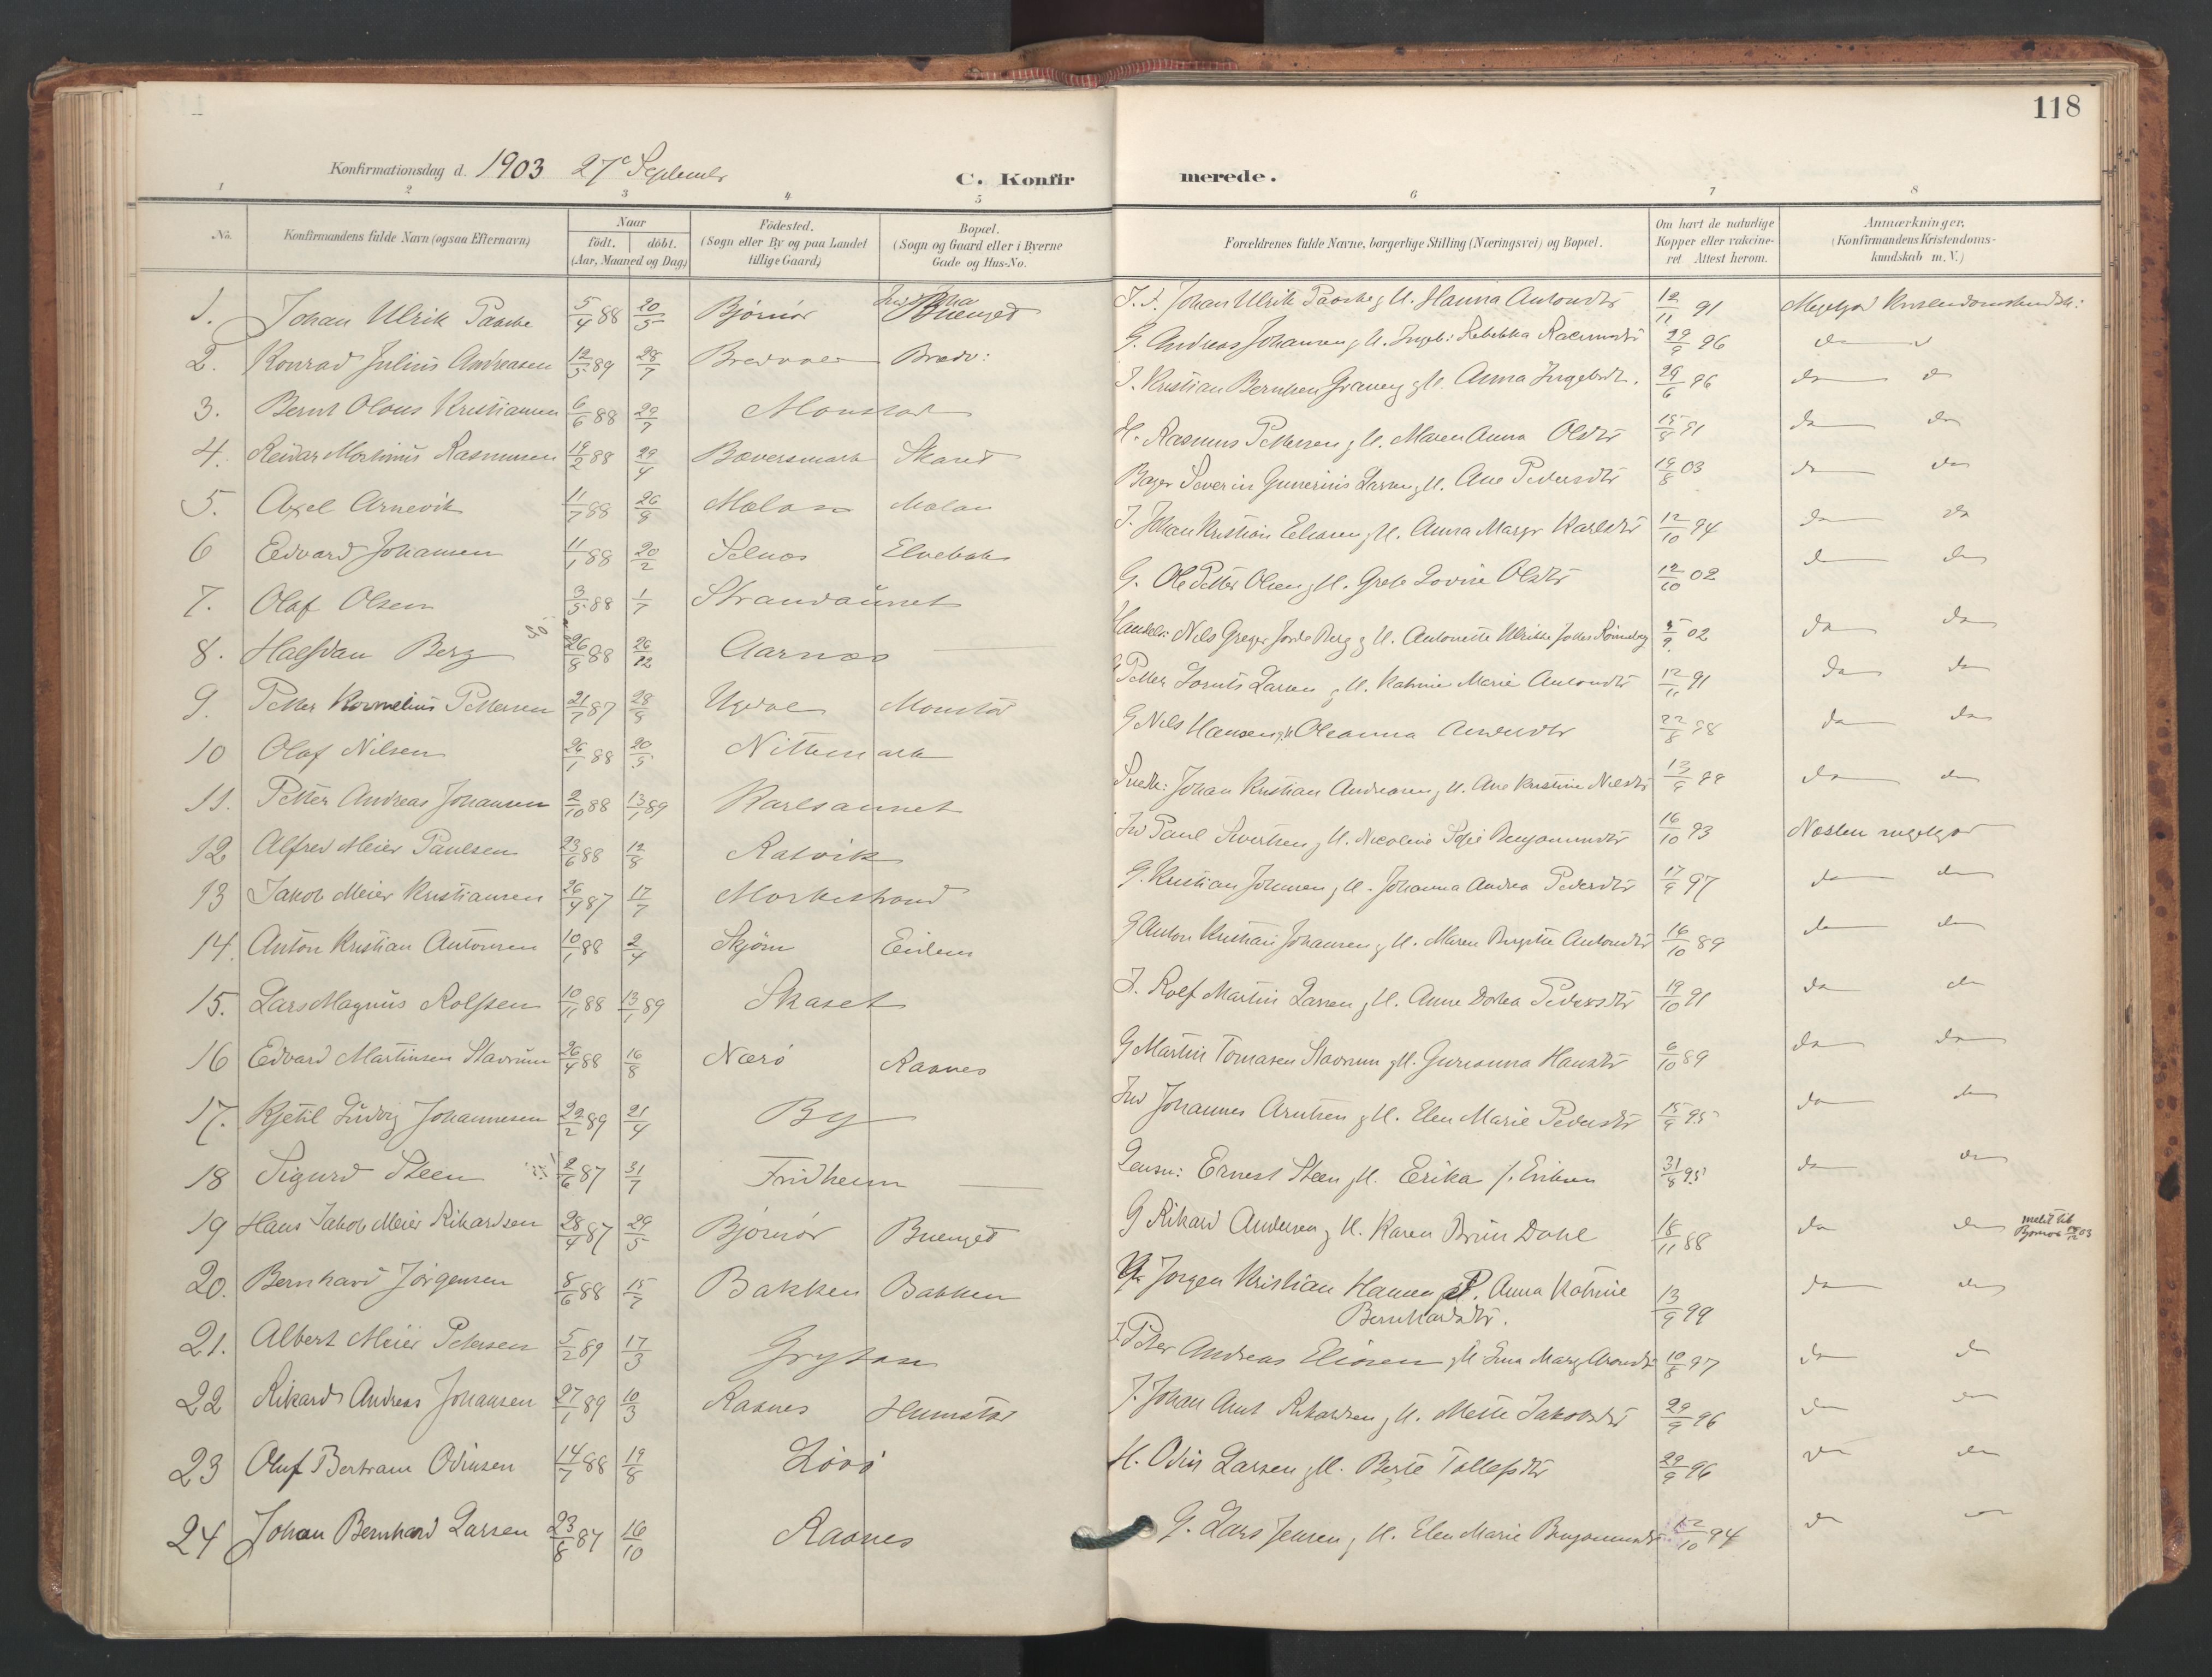 118
Konfirmationsdag d. 1903 27de September
C. Konfirmerede.
1 2 3 4 5 6 7 8
No. Konfirmandens fulde Navn (ogsaa Efternavn) Naar födt. döbt. (Aar, Maaned og Dag.) Födested. (Sogn eller By og paa Landet tillige Gaard.) Bopæl. (Sogn og Gaard eller i Byerne Gade og Hus-No. Forældrenes fulde Navne, borgerlige Stilling (Næringsvei) og Bopæl. Om havt de naturlige Kopper eller vaccineret Attest herom. Anmærkninger. (Konfirmandens Kristendomskundskab m. V.)
1. Johan Ulrik Paaske 5/4 88 20/5 Bjørnør Buenget Johan Ulrik Paaske, H. Hanna Antonsdtr 12/11 91 Megetgod Kristendomskundsk:
2. Konrad Julius Andreasen 12/5 89 28/7 Bredv: G. Andreas Johansen, H. Ingeb: Rebekka Rasmusdtr 29/9 96 do
3. Bernt Olaus Kristiansen 6/6 88 29/7 Monstad Kristian Berntsen H. Anna Ingebrdtr. 29/6 96 do do
4. Reidar Martinus Rasmussen 19/2 88 29/4 Bæversmark Skaret H. Rasmus Pettersen, H. Maren Anna Olsdtr 15/8 91 do do
5. Axel Arnevik 11/7 88 26/8 Malan Malan Bager Severin Gunerius Larsen, H. Ane Pedersdtr 19/8 03 do do
6 Edvard Johansen 11/1 88 20/2 Selnes Elvebak J. Johan Kristian Eliasen, H. Anna Margr Karlsdtr 12/10 94 do do
7. Olaf Olsen 3/5 88 1/7 Strandaunet G. Ole Petter Olsen, H. Grete Lovise Olsdtr 12/10 02 do do
8. Halfdan Berg 26/8 88 26/12 Aarnes Handels: Nils Greger Berg, H. Antonette Ulrikke 5/9 02 do do
9. Petter Kornelius Pettersen 21/7 87 28/8 Ugedal Monstad Petter Lornts Larsen, H. Katrine Marie Antonsdtr 12/11 91 do do
10 Olaf Nilsen 26/1 88 20/5 Nittemark G Nils Hansen, H Oleanna 22/8 98 do do
11. Petter Andreas Johansen 2/10 88 13/1 89 Karlsaunet Snedk: Johan Kristian Andreasen, H. Ane Kristine Nilsdtr do do
12 Alfred Meier Paulsen 23/6 88 12/8 Ratvik Ind Paul Sivertsen, H. Nicoline Sofie Benjaminsdtr 16/10 93 Næsten megetgod
13 Jakob Meier Kristiansen 26/4 87 17/7 Morkestrand G. Kristian Johnsen, H. Johanna Andrea Pedersdtr 17/9 97 do do
14. Anton Kristian Antonsen 10/1 88 2/4 Skjørn Eidem G Anton Kristian Johansen, H. Maren Birgitte Antonsdtr 16/10 89 do do
15. Lars Magnus Rolfsen 10/11 88 13/1 89 Skaset Rolf Martin Larsen, H. Anne Dortea Pedersdtr 19/10 91 do do
16 Edvard Martinsen Stavrum 26/4 88 16/8 Nærö Raanes G Martin Tomasen Stavrum, H. Gurianna Hansdtr 6/10 89 do do
17. Kjetil Ludvig Johannesen 22/2 89 21/4 By Ind Johannes Arntsen, H. Elen Marie Pedersdtr 15/9 95 do do
18 Sigurd Steen 2/6 87 31/7 Fridheim Lensm: Ernest Steen, H. Erika f. Eriksen 31/8 95 do do
19 Hans Jakob Meier Rikardsen 28/4 87 29/5 Bjørnør Buenget G Rikard Andersen, H. Karen Brun Dahl 18/11 88 do do meldt til Bjørnør
20. Bernhard Jörgensen 8/6 88 15/7 Bakken Bakken Jörgen Kristian Hansen, P. Anna Katrine
Bernhardsdtr. 13/9 99 do do
21. Albert Meier Petersen 5/2 89 17/3 Grytan J. Peter Andreas Eliasen, H Marg 10/8 97 do do
22 Rikard Andreas Johansen 27/1 89 10/3 Raanes Humstad J. Johan Arnt Rikardsen, H. Mette Jakobsdtr 29/9 96 do do
23 Oluf Bertram Odinsen 14/7 88 19/8 Lövö H. Odin Larsen, H. Berte Tollefsdtr 29/9 96 do do
24 Johan Bernhard Larsen 23/8 87 16/10 Raanes G. Lars Jensen, H. Elen Marie Benjaminsdtr 12/10 94 do